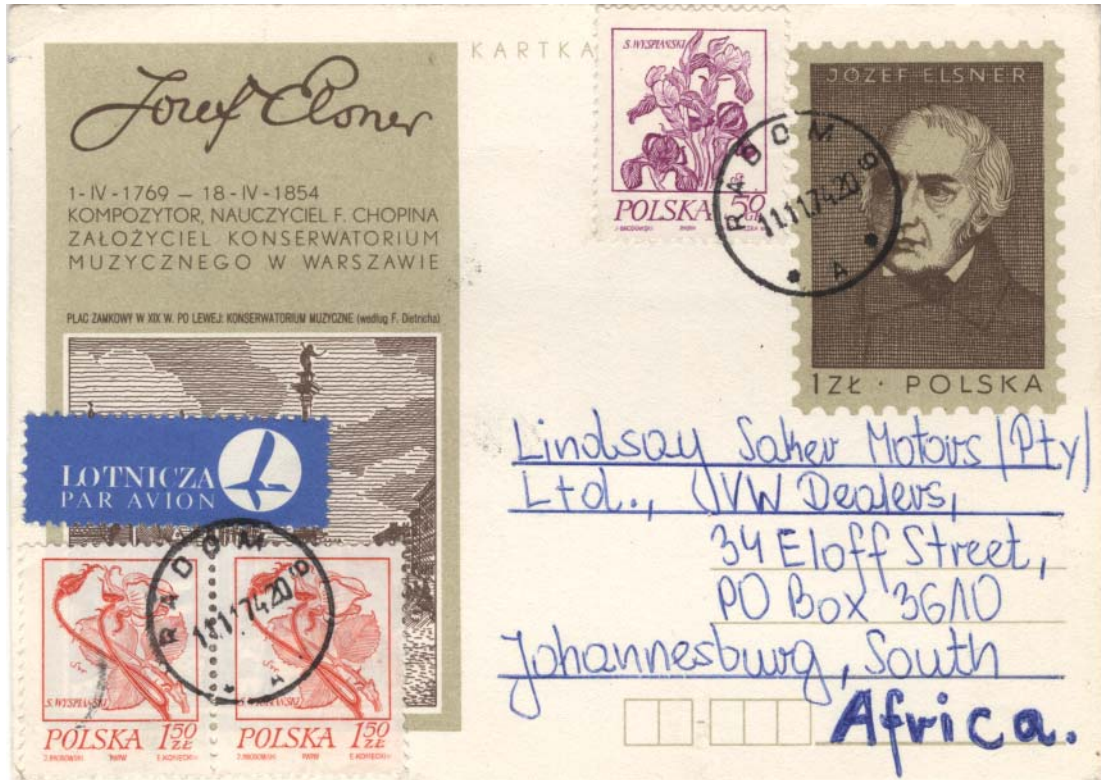 KARTKA
Józef Elsner
1-IV-1769 – 18-IV-1854
KOMPOZYTOR, NAUCZYCIEL F. CHOPINA
ZAŁOŻYCIEL KONSERWATORIUM
MUZYCZNEGO W WARSZAWIE
PLAC ZAMKOWY W XIX W. PO LEWEJ: KONSERWATORIUM MUZYCZNE (według F. Dietricha)
LOTNICZA
PAR AVION
S. WYSPIAŃSKI
POLSKA 150 ZŁ
S. WYSPIAŃSKI
POLSKA 150 ZŁ
RADOM 9
11.11.74.20
A
S. WYSPIAŃSKI
POLSKA 50
RADOM 9
11.11.74.20
A
JÓZEF ELSNER
1 ZŁ · POLSKA
Lindsay Saker Motors (Pty)
Ltd., VW Dealers,
34 Eloff Street,
PO Box 3610
Johannesburg, South
Africa.